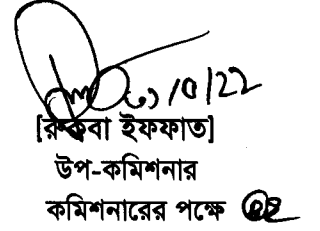 [রুকবা ইফফাত]
উপ-কমিশনার
কমিশনারের পক্ষে